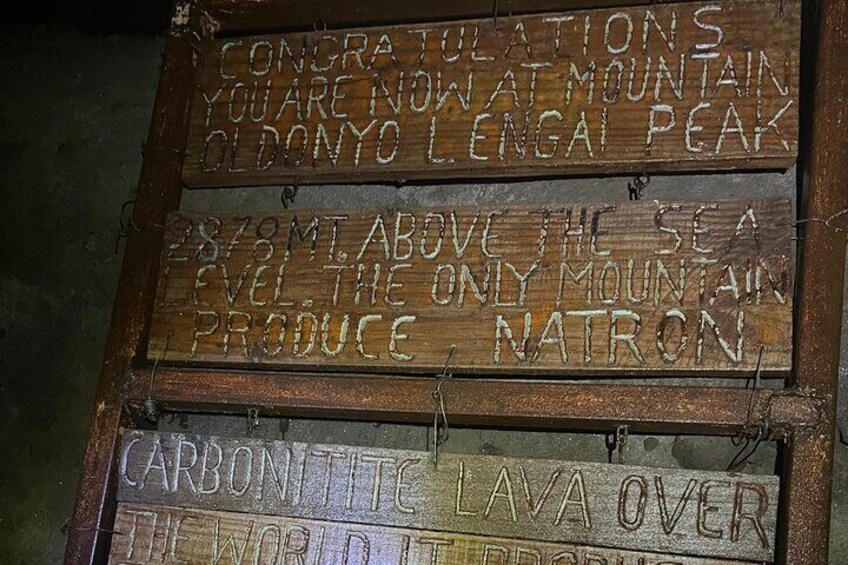 CONGRATULATIONS
YOU ARE NOW AT MOUNTAIN
OLDONYO LENGAI PEAK
2878 MT. ABOVE THE SEA
LEVEL. THE ONLY MOUNTAIN
PRODUCE NATRON
CARBONITITE LAVA OVER
THE WORLD IT